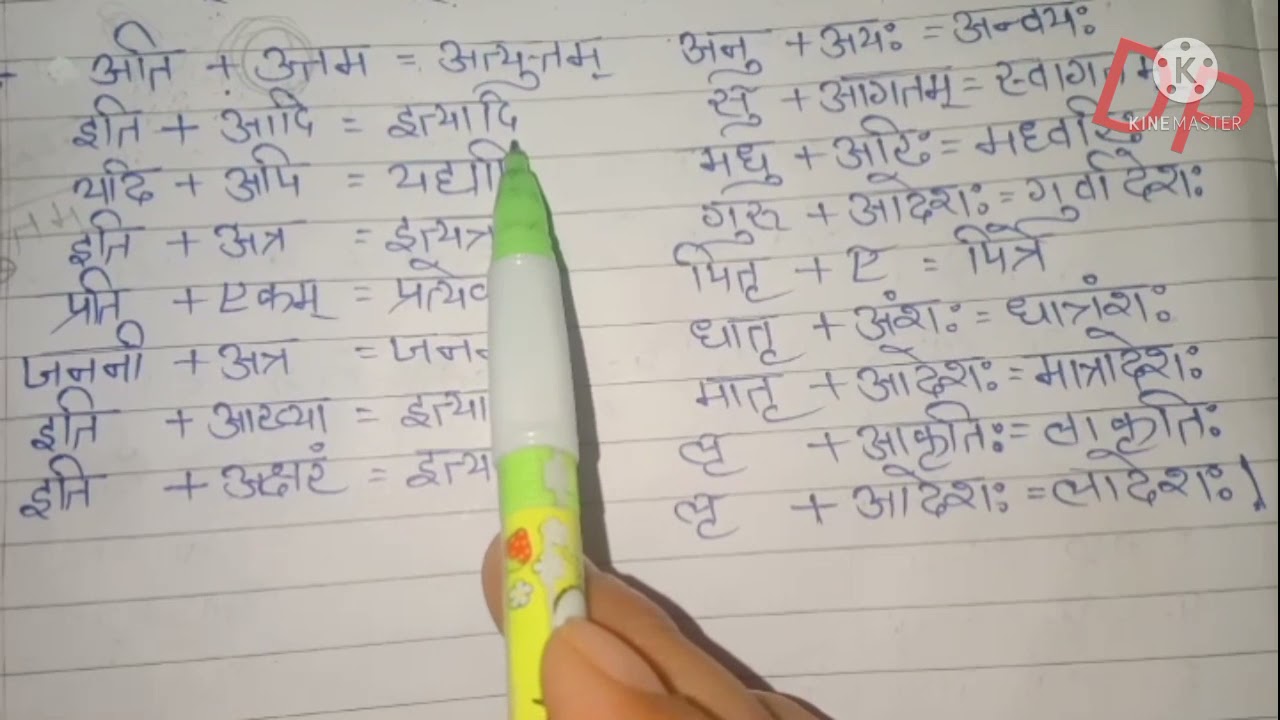 अति + उत्तम = अत्युत्तम्
इति + आदि = इत्यादि
यदि + अपि = यद्यपि
इति + अत्र = इत्यत्र
प्रति + एकम् =
जननी + अत्र =
इति + आख्या =
इति + अक्षरं =
अनु + अयः = अन्वयः
सु + आगतम् = स्वागतम्
मधु + अरिः = मध्वरिः
गुरू + आदेशः = गुर्वादेशः
पितृ + ए = पित्रे
धातृ + अंशः = धात्रंशः
मातृ + आदेशः = मात्रादेशः
लृ + आकृतिः = लाकृतिः
लृ + आदेशः = लादेशः।
K
KINEMASTER